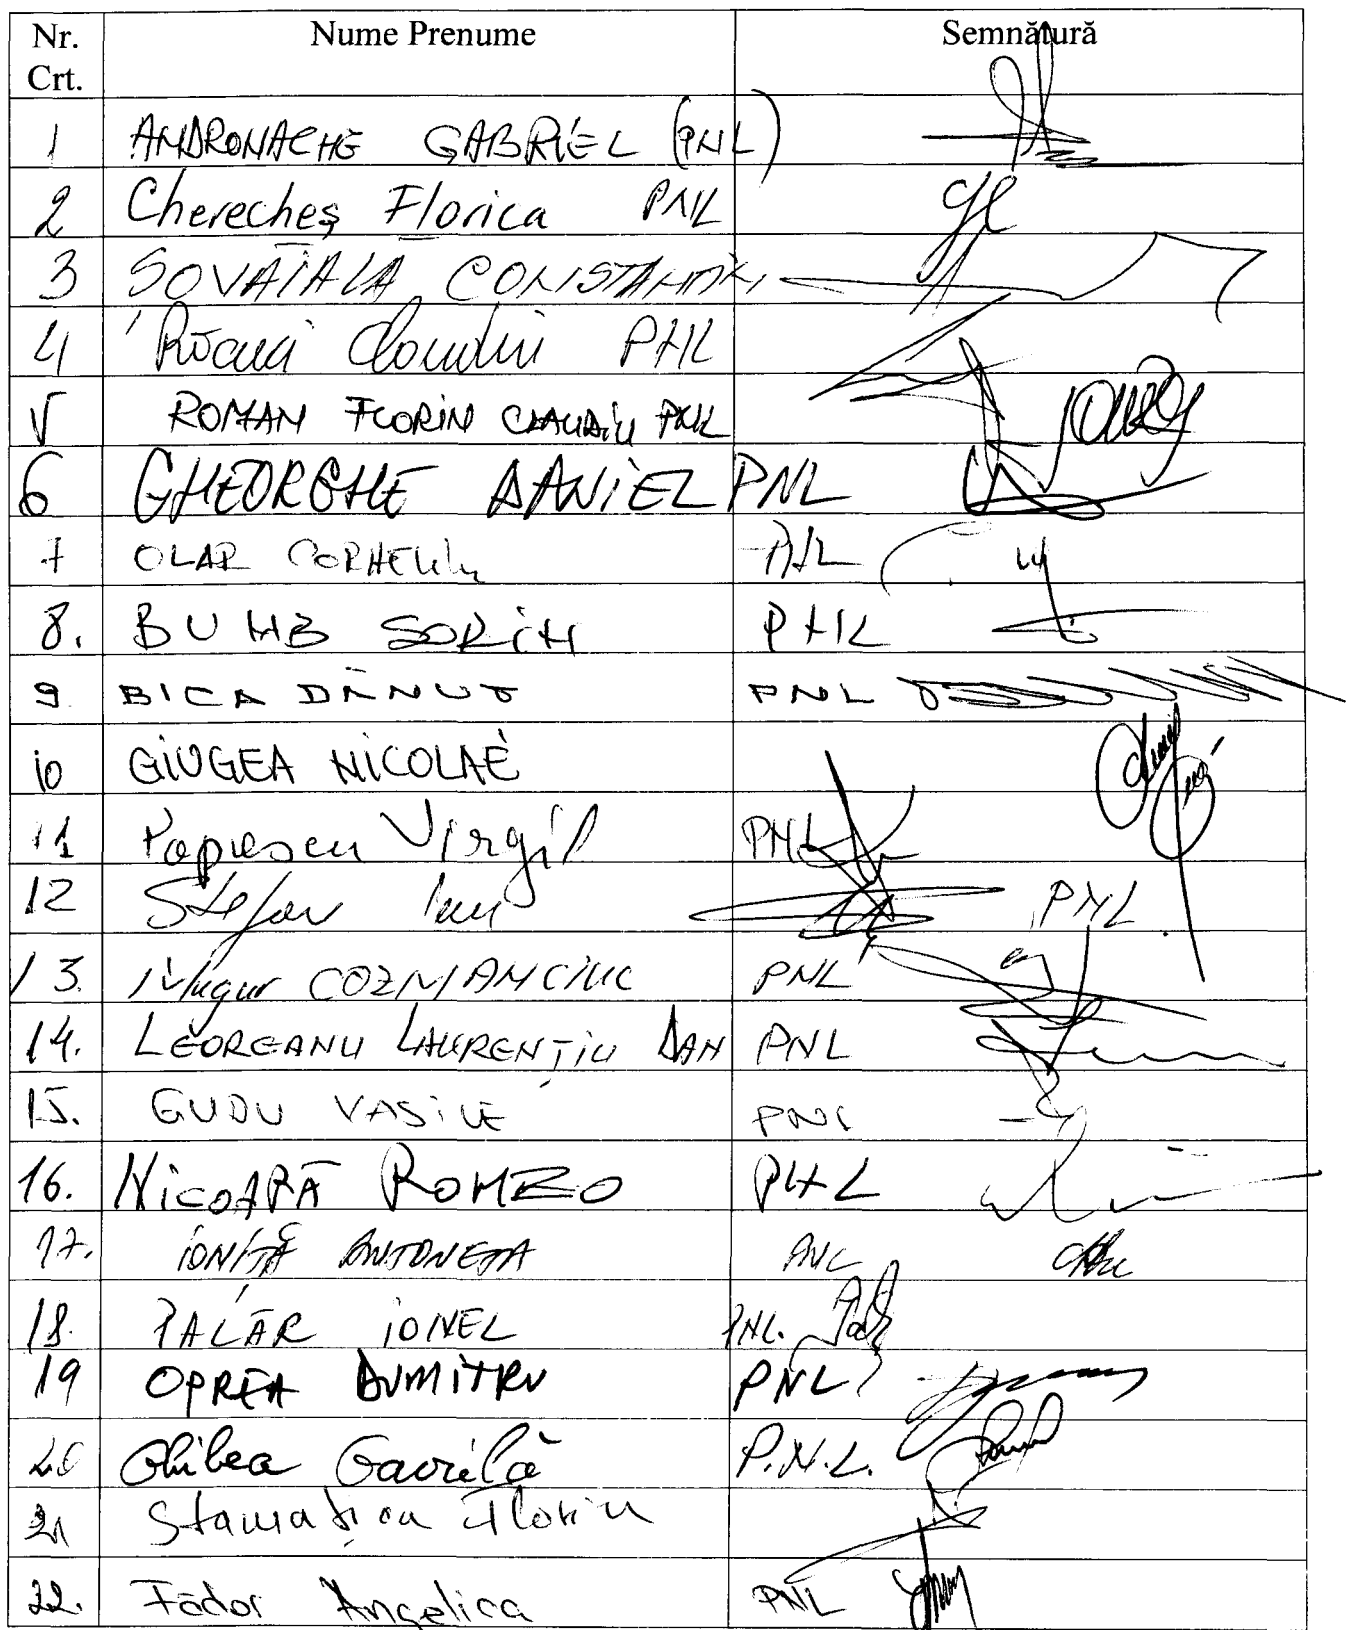 Nr. Crt. Nume Prenume Semnătură
1 ANDRONACHE GABRIEL (PNL)
2 Cherecheș Florica PNL
3 SOVĂIALĂ CONSTANTIN
4 Răcuci Claudiu PNL
V ROMAN FLORIN CLAUDIU PNL
6 GHEORGHE DANIEL PNL
7 OLAR CORNELIU PNL
8. BUMB SORIN PNL
9 BICA DĂNUȚ PNL
10 GIUGEA NICOLAE
11 Popescu Virgil PNL
12 Stefan Ion PNL
13. Mugur COZMANCIUC PNL
14. LEOREANU LAURENȚIU DAN PNL
15. GUDU VASILE PNL
16. NICOARĂ ROMEO PNL
17. IONIȚĂ ANTONETA PNL
18. PALĂR IONEL PNL.
19 OPREA DUMITRU PNL
20 Ghilea Gavrilă P.N.L.
21 Stamatian Florin
22. Fădor Angelica PNL